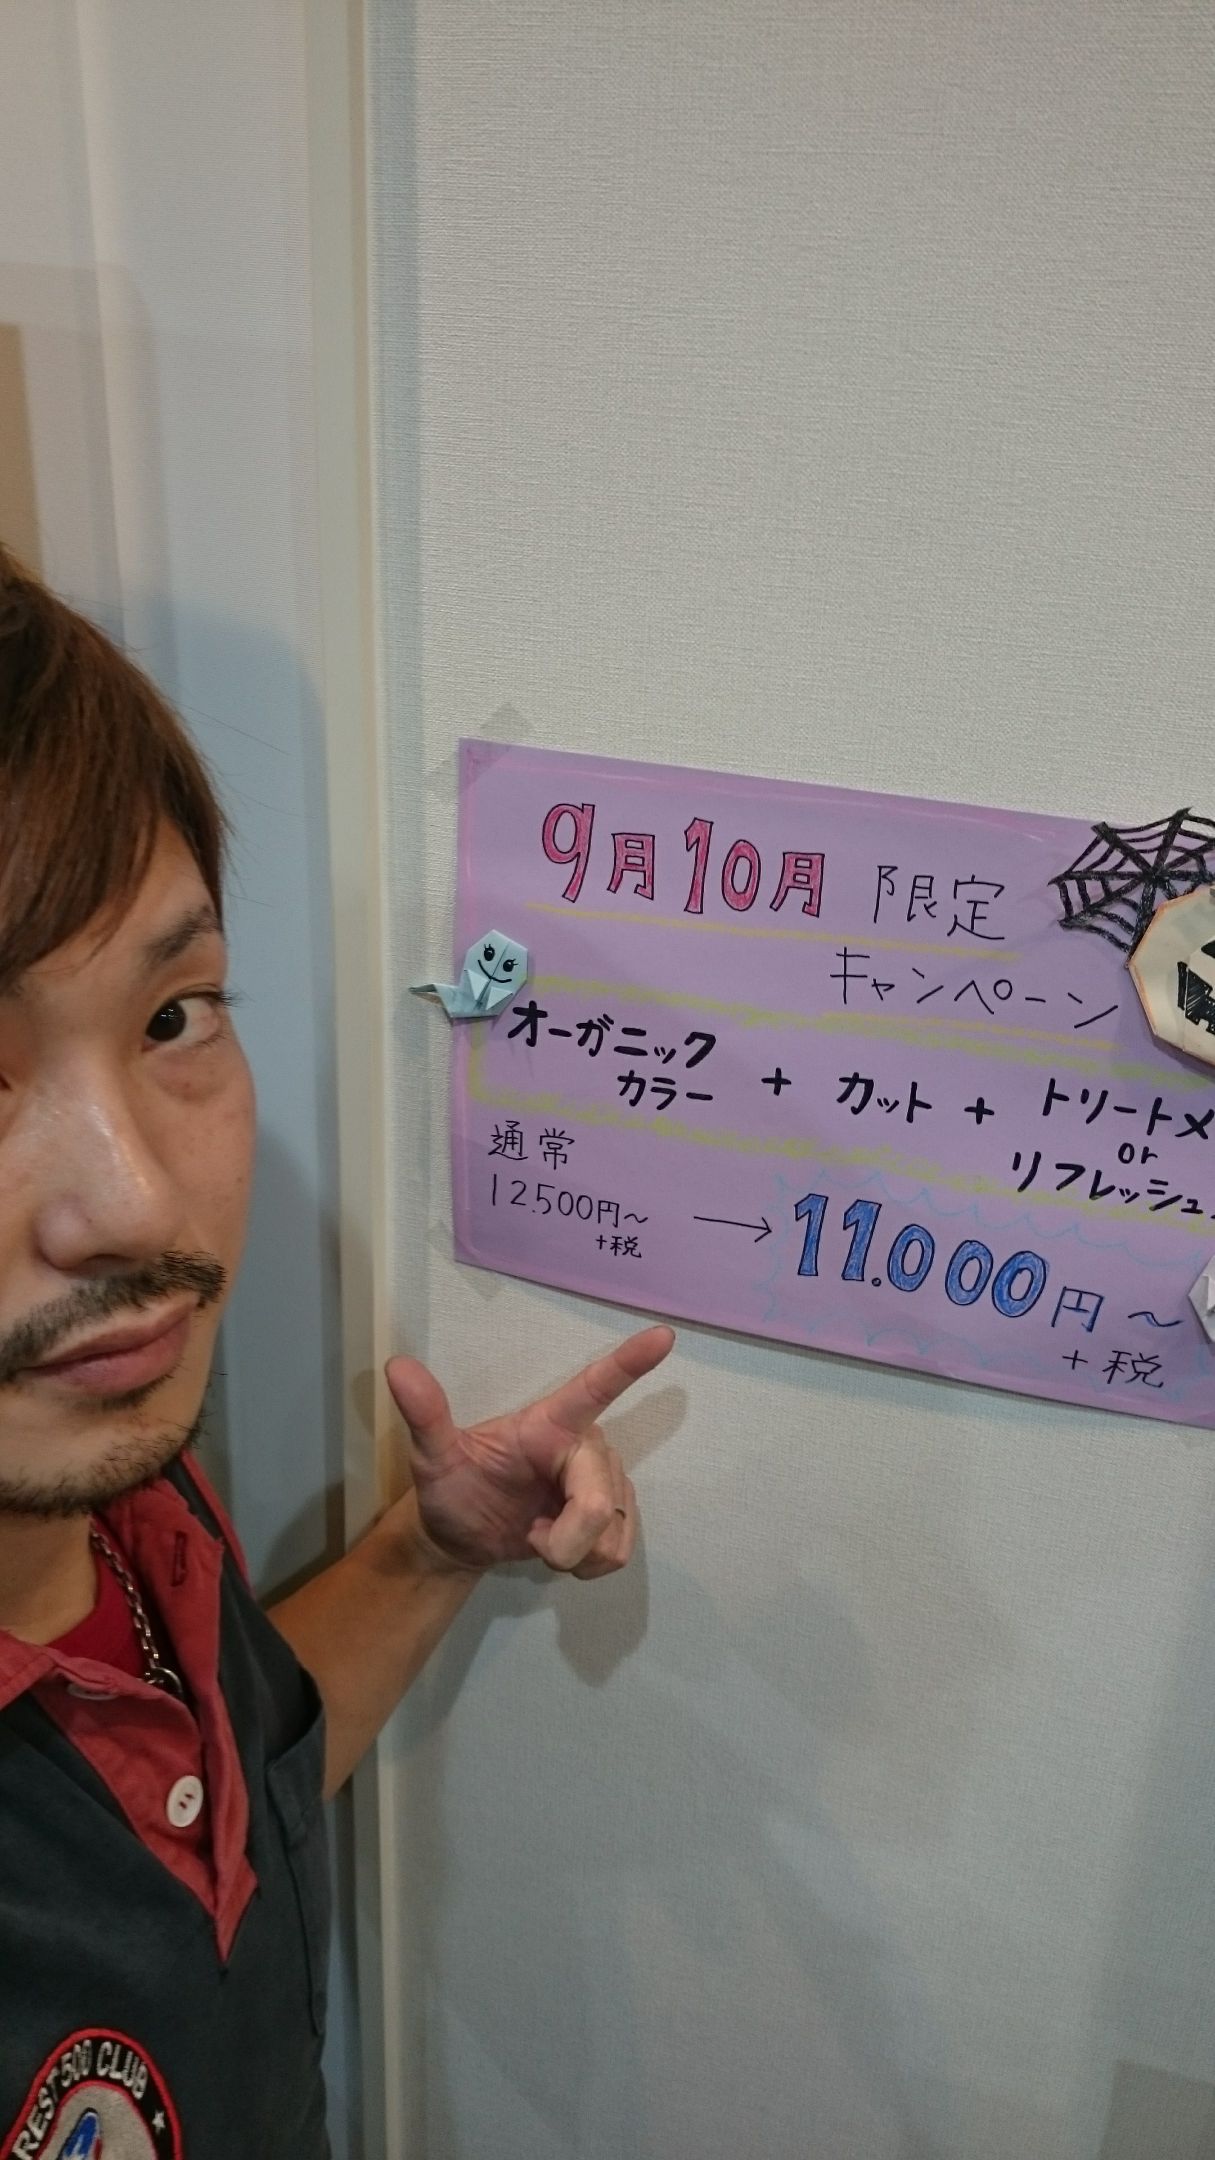 9月10月 限定
キャンペーン
オーガニック
カラー + カット + トリートメ
or
リフレッシュ
通常
12.500円～
+税
→ 11.000円～
+税
REST 500 CLUB